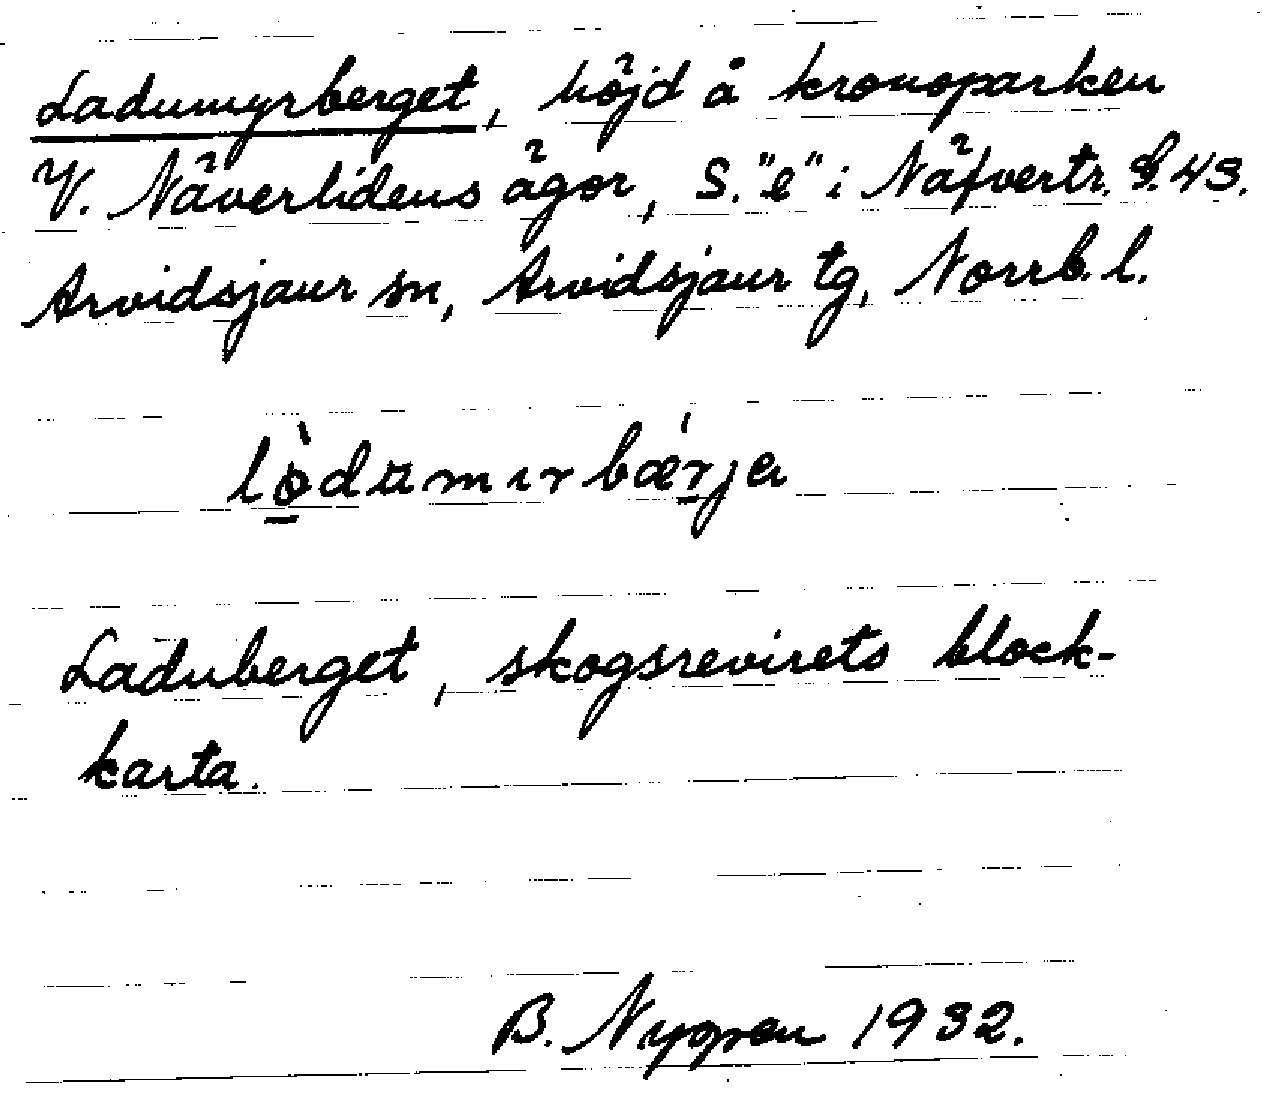 Ladumyrberget, höjd å kronoparken
V. Näverlidens ägor, S. "e" i Näfvertr. § 43.
Arvidsjaur sn, Arvidsjaur tg, Norrb. l.
Laduberget, skogsrevirets block-
karta.
B. Nygren 1932.